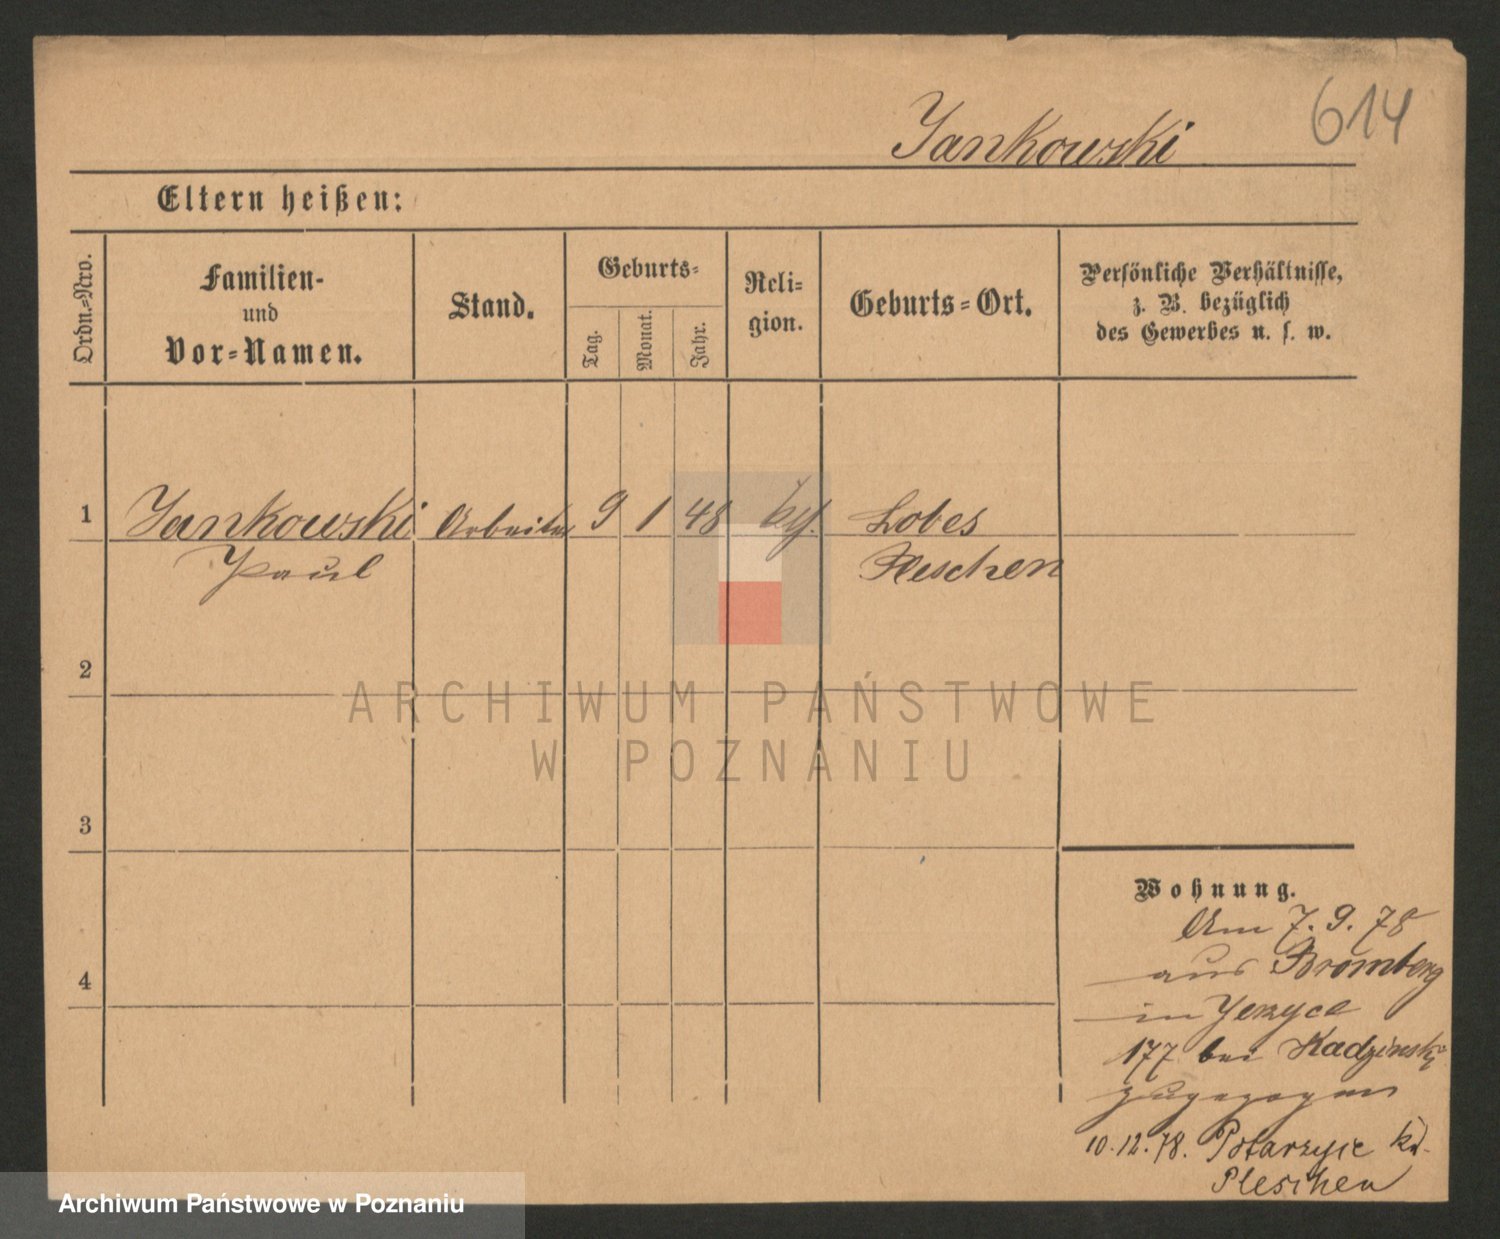 614
Jankowski
Eltern heißen:
Ordn.=Nro.
Familien-
und
Vor=Namen.
Stand.
Geburts=
Tag.
Monat.
Jahr.
Reli=
gion.
Geburts=Ort.
Persönliche Verhältnisse,
z. B. bezüglich
des Gewerbes u. s. w.
1
Jankowski
Paul
Arbeiter
9
1
48
Lobes
Pleschen
2
3
4
Wohnung.
Am 7. 9. 78
aus Bromberg
in Jerzyce
177 bei Kadzinski
zugezogen
10.12.78. Potarzyce
Pleschen
ARCHIWUM PAŃSTWOWE
W POZNANIU
Archiwum Państwowe w Poznaniu